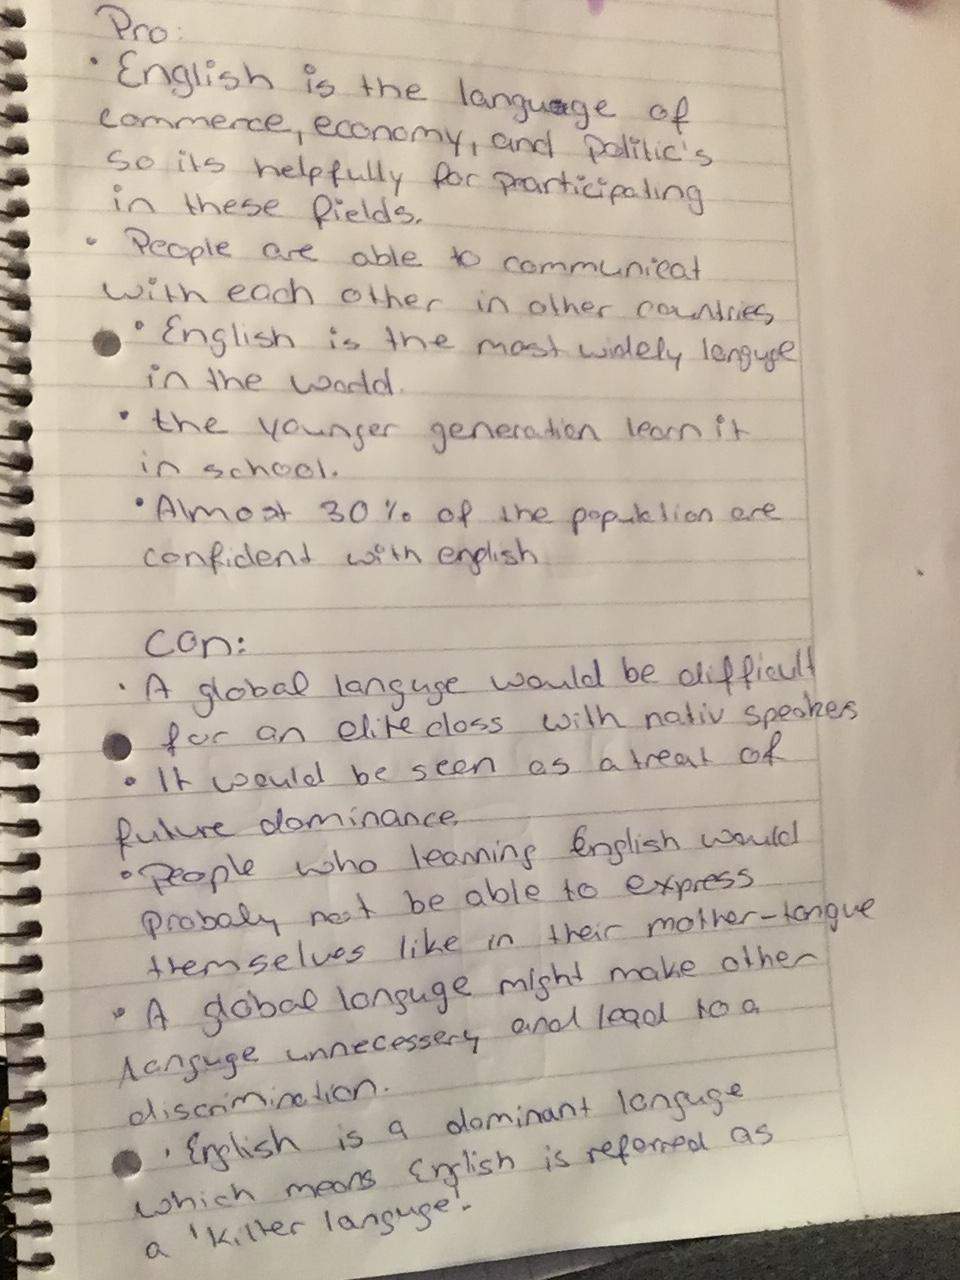 Pro:
• English is the language of
commerce, economy, and Politic's
so its helpfully for participating
in these fields.
• People are able to communicat
with each other in other countries
• English is the most widely languge
in the world.
• the younger generation learn it
in school.
• Almost 30% of the population are
confident with english
Con:
• A global languge would be difficult
for an elite class with nativ speakers
• It would be seen as a treat of
future dominance
• People who learning English would
Probaly not be able to express
themselves like in their mother-tongue
• A global languge might make other
languge unnecessery and lead to a
discrimination.
• English is a dominant languge
which means English is referred as
a 'killer languge'.